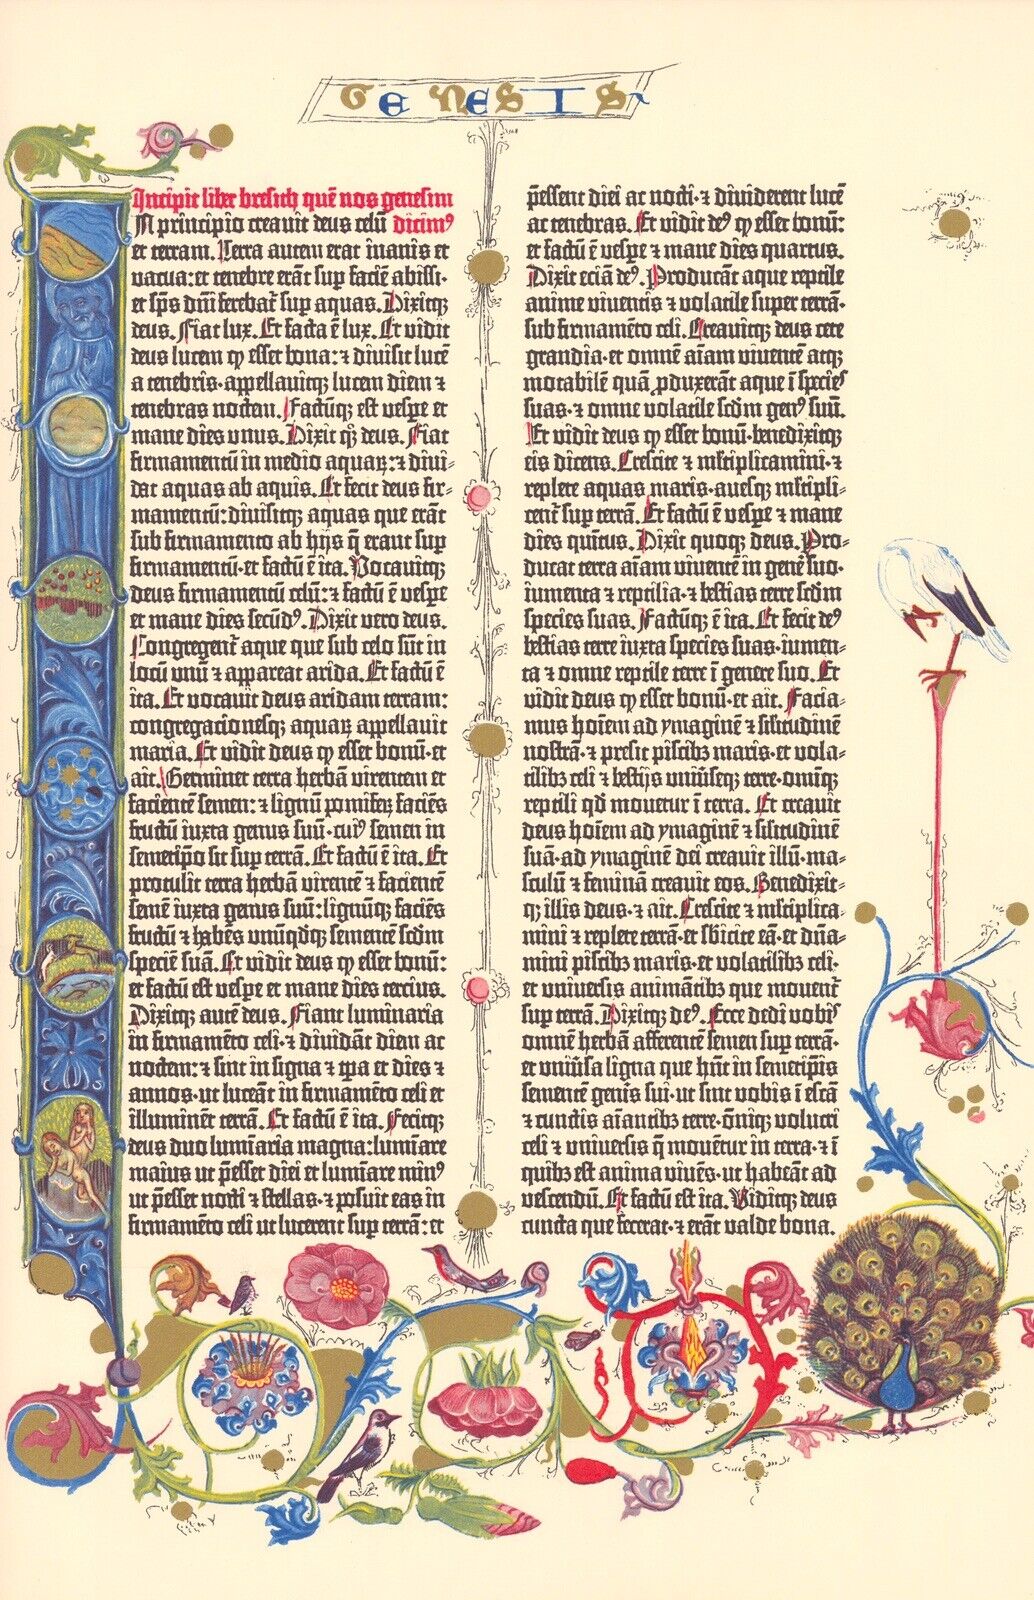 GENESIS
Incipit liber bresith quē nos genesim
N principio creavit deus celū dicimꝰ
et terram. Terra autem erat inanis et
vacua: et tenebre erāt sup faciē abissi·
et sp̄s dn̄i ferebat᷑ sup aquas. Dixitqꝫ
deus. Fiat lux. Et facta ē lux. Et vidit
deus lucem ꝙ esset bona: ⁊ divisit lucē
a tenebris·appellavitqꝫ lucem diem ⁊
tenebras noctem. Factūqꝫ est vespe et
mane dies vnus. Dixit qꝫ deus. Fiat
firmamentū in medio aquaꝝ: ⁊ divi-
dat aquas ab aquis. Et fecit deus fir-
mamentū: divisitqꝫ aquas que erāt
sub firmamento ab hijs q̄ erant sup
firmamentū· et factū ē ita. Vocavitqꝫ
deus firmamentū celū: ⁊ factū ē vespe
et mane dies secūdꝰ. Dixit vero deus.
Congregent᷑ aque que sub celo sūt in
locū vnū ⁊ appareat arida. Et factū ē
ita. Et vocavit deus aridam terram:
congregacionesqꝫ aquaꝝ appellavit
maria. Et vidit deus ꝙ esset bonū· et
ait. Germinet terra herbā virentem et
facientē semen: ⁊ lignū pomifeꝝ faciēs
fructū iuxta genus suū· cuiꝰ semen in
semetipō sit sup terrā. Et factū ē ita. Et
protulit terra herbā virentē ⁊ facientē
semē iuxta genus suū: lignūqꝫ faciēs
fructū ⁊ habēs vnūqdqꝫ sementē scdm
speciē suā. Et vidit deus ꝙ esset bonū:
et factū est vespe et mane dies tercius.
Dixitqꝫ autē deus. Fiant luminaria
in firmamēto celi· ⁊ dividāt diem ac
noctem: ⁊ sint in signa ⁊ tp̄a et dies ⁊
annos· ut luceāt in firmamēto celi et
illuminēt terrā. Et factū ē ita. Fecitqꝫ
deus duo lumīaria magna: lumīare
maius ut p̄esset diei et lumīare minꝰ
ut p̄esset nocti ⁊ stellas· ⁊ posuit eas in
firmamēto celi ut lucerent sup terrā: et
p̄essent diei ac nocti· ⁊ dividerent lucē
ac tenebras. Et vidit deꝰ ꝙ esset bonū:
et factū ē vespe ⁊ mane dies quartus.
Dixit eciā deꝰ. Producāt aque reptile
anime viventis ⁊ volatile super terrā·
sub firmamēto celi. Creavitqꝫ deus cete
grandia· et omnē aīam viventē atqꝫ
motabilē quā ꝓduxerāt aque ī species
suas· ⁊ omne volatile scdm genꝰ suū.
Et vidit deus ꝙ esset bonū· benedixitqꝫ
eis dicens. Crescite ⁊ mltiplicamini· ⁊
replete aquas maris· avesqꝫ mltipli-
cent᷑ sup terrā. Et factū ē vespe ⁊ mane
dies quītus. Dixit quoqꝫ deus. Pro-
ducat terra aīam viventē in genē suo·
iumenta ⁊ reptilia· ⁊ bestias terre scdm
species suas. Factūqꝫ ē ita. Et fecit deꝰ
bestias terre iuxta species suas· iumen-
ta ⁊ omne reptile terre ī genere suo. Et
vidit deus ꝙ esset bonū· et ait. Facia-
mus hoīem ad ymaginē ⁊ silitudinē
nostrā· ⁊ presit piscibꝫ maris· et vola-
tilibꝫ celi ⁊ bestijs vniūseqꝫ terre· omīqꝫ
reptili qd movetur ī terra. Et creavit
deus hoīem ad ymaginē ⁊ silitudinē
suā· ad ymaginē dei creavit illū· ma-
sculū ⁊ feminā creavit eos. Benedixit-
qꝫ illis deus· ⁊ ait. Crescite ⁊ mltiplica-
mini ⁊ replete terrā· et sbicite eā· et dn̄a-
mini piscibꝫ maris· et volatilibꝫ celi·
et universis animātibꝫ que movent᷑
sup terrā. Dixitqꝫ deꝰ. Ecce dedi vobis
omnē herbā afferentē semen sup terrā·
et vniūsa ligna que hn̄t in semetipīs
sementē genis sui· ut sint vobis ī escā
⁊ cunctis aīantibꝫ terre· omīqꝫ volucri
celi ⁊ vniversis q̄ moventur in terra· ⁊ ī
quibꝫ est anima vivēs· ut habeāt ad
vescendū. Et factū est ita. Viditqꝫ deus
cuncta que fecerat· ⁊ erāt valde bona.